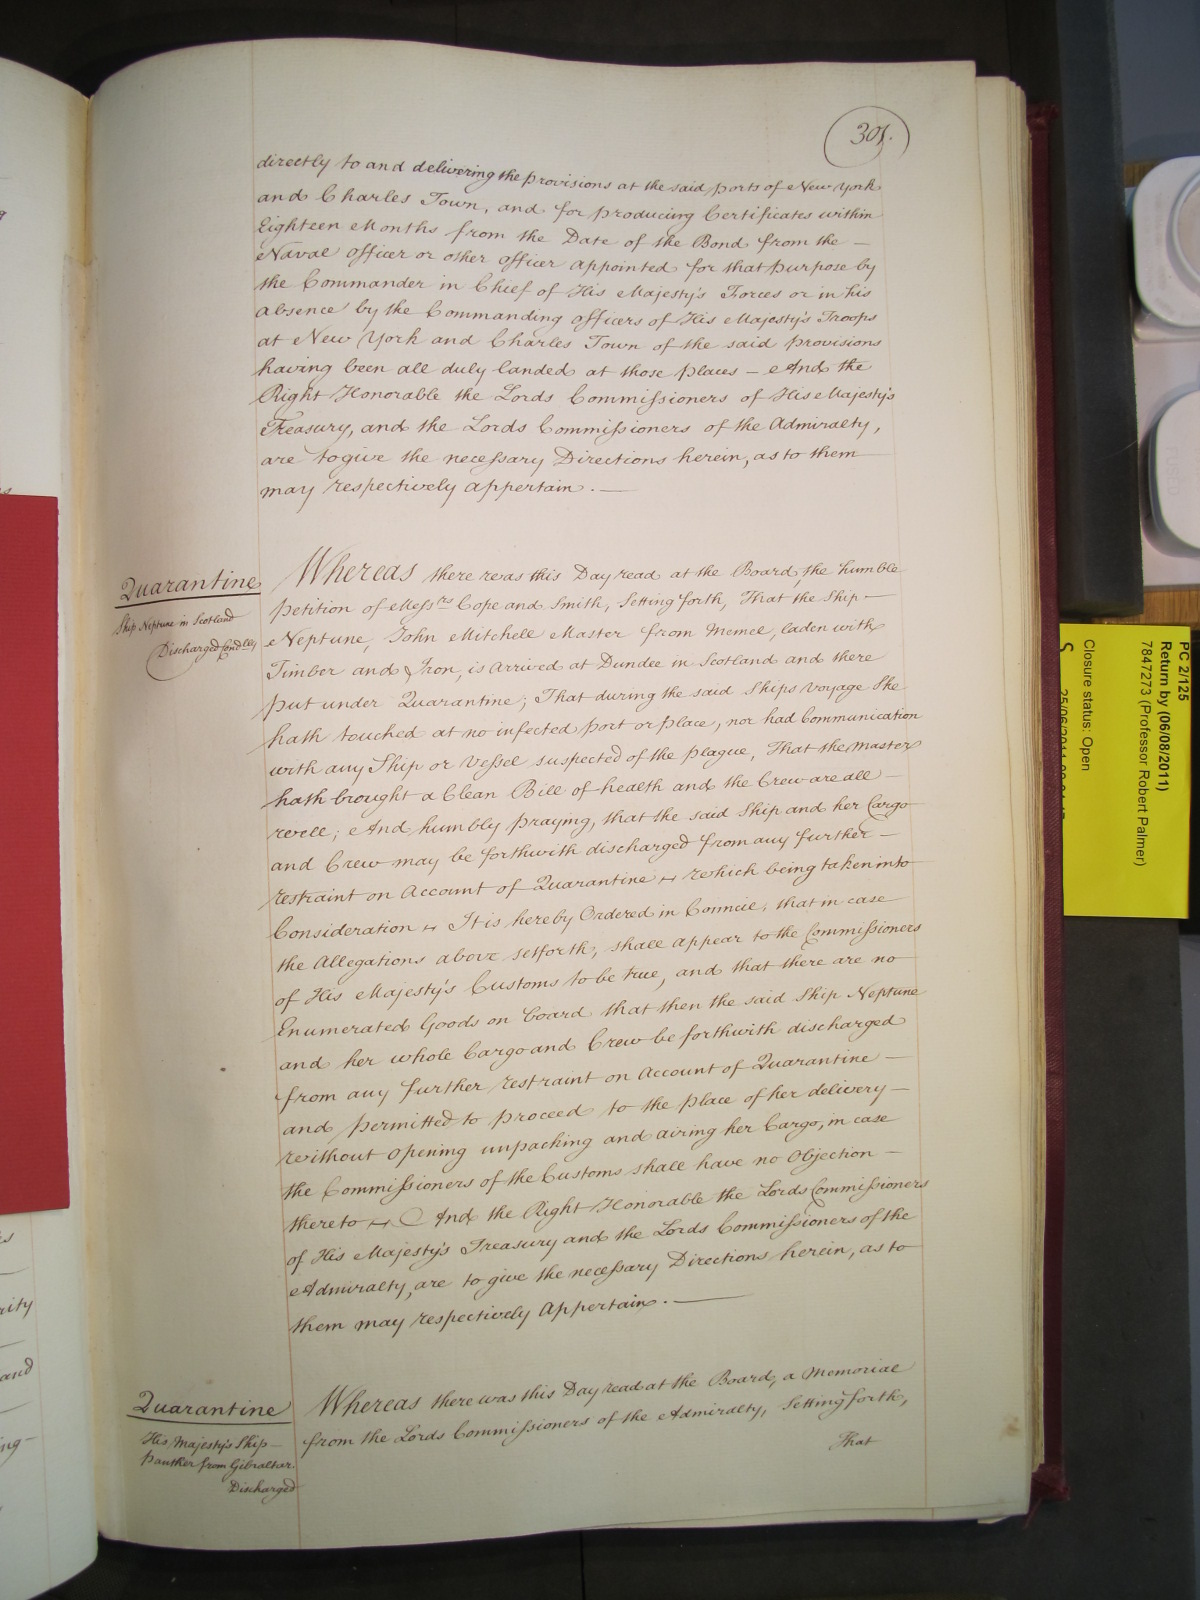 301.
directly to and delivering the provisions at the said ports of New York
and Charles Town, and for producing Certificates within
Eighteen Months from the Date of the Bond from the —
Naval officer or other officer appointed for that purpose by
the Commander in Chief of His Majesty's Forces or in his
absence by the Commanding officers of His Majesty's Troops
at New York and Charles Town of the said provisions
having been all duly landed at those places — And the
Right Honorable the Lords Commissioners of His Majesty's
Treasury, and the Lords Commissioners of the Admiralty,
are to give the necessary Directions herein, as to them
may respectively appertain. —
Quarantine
Ship Neptune in Scotland
Discharged Cond.lly
Whereas there was this Day read at the Board, the humble
petition of Mess.rs Cope and Smith, Setting forth, That the Ship —
Neptune, John Mitchell Master from Memel, laden with
Timber and Iron, is arrived at Dundee in Scotland and there
put under Quarantine; That during the said Ships Voyage She
hath touched at no infected port or place, nor had Communication
with any Ship or Vessel suspected of the plague, That the Master
hath brought a Clean Bill of health and the Crew are all —
well; And humbly praying, that the said Ship and her Cargo
and Crew may be forthwith discharged from any further —
restraint on Account of Quarantine — which being taken into
Consideration — It is hereby Ordered in Council, that in case
the Allegations above setforth, shall appear to the Commissioners
of His Majesty's Customs to be true, and that there are no
Enumerated Goods on board that then the said Ship Neptune
and her whole Cargo and Crew be forthwith discharged
from any further restraint on Account of Quarantine —
and permitted to proceed to the place of her delivery —
without opening unpacking and airing her Cargo, in case
the Commissioners of the Customs shall have no Objection —
thereto — And the Right Honorable the Lords Commissioners
of His Majesty's Treasury and the Lords Commissioners of the
Admiralty, are to give the necessary Directions herein, as to
them may respectively Appertain. —
Quarantine
His Majesty's Ship —
Panther from Gibraltar.
Discharged
Whereas there was this Day read at the Board, a Memorial
from the Lords Commissioners of the Admiralty, Setting forth,
That
PC 2/125
Return by (06/08/2011)
7847273 (Professor Robert Palmer)
Closure status: Open
S